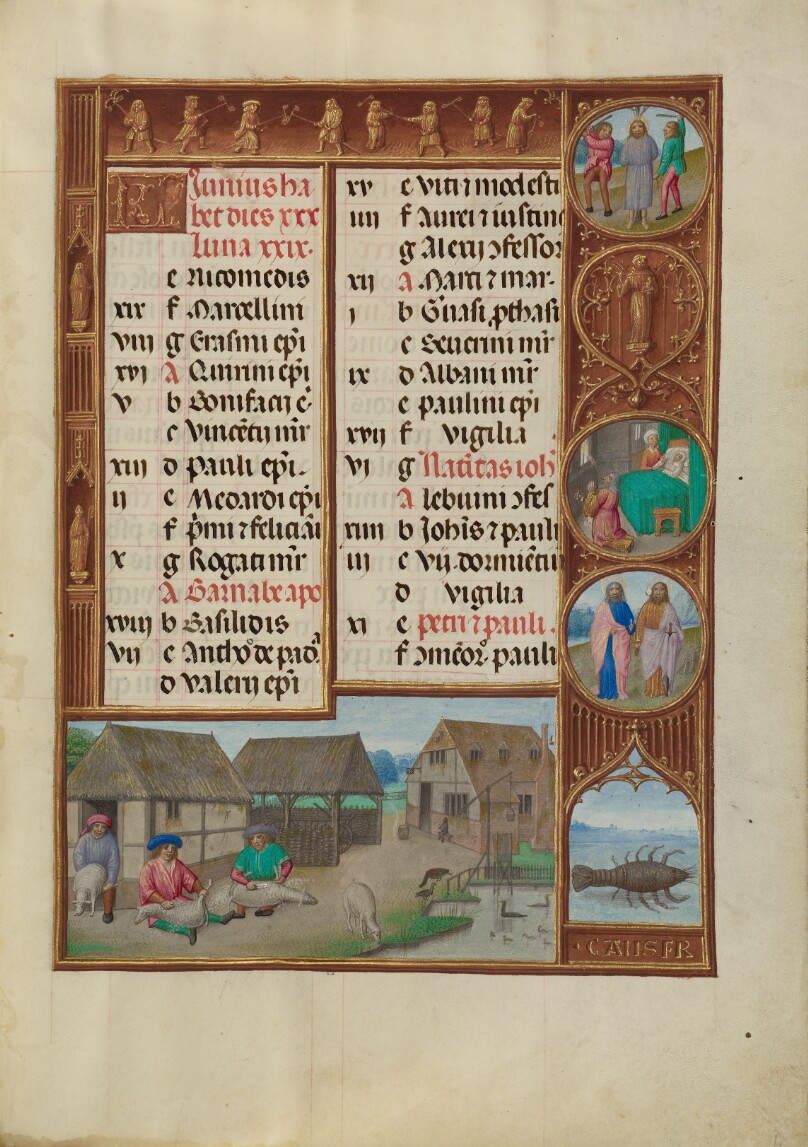 KL Iunius ha
bet dies xxx
Luna xxix.
e Nicomedis
xix f Marcellini
viii g Erasmi ep̄i
xvi A Quirini ep̄i
v b Bonifacij
c Vincētij mr̄
xiii d Pauli ep̄i.
ii e Medardi ep̄i
f p̄mi ⁊ feliciāi
x g Rogati mr̄
A Barnabe apo
xviii b Basilidis
vii c Antho᷒ de pad
d Valerij ep̄i
xv e Viti ⁊ modesti
iiii f Aurei ⁊ iustine
g Alexij ɔfessor
xii A Marci ⁊ mar.
i b Geruasi ꝓthasi
c Seuerini mr̄
ix d Albani mr̄
e paulini ep̄i
xvii f vigilia
vi g Natiuitas ioh
A lebuini ɔfes
xiiii b Ioh̄is ⁊ pauli
iii c vij. dormiētiu
d vigilia
xi e petri ⁊ pauli.
f ɔmēor pauli
CANSER